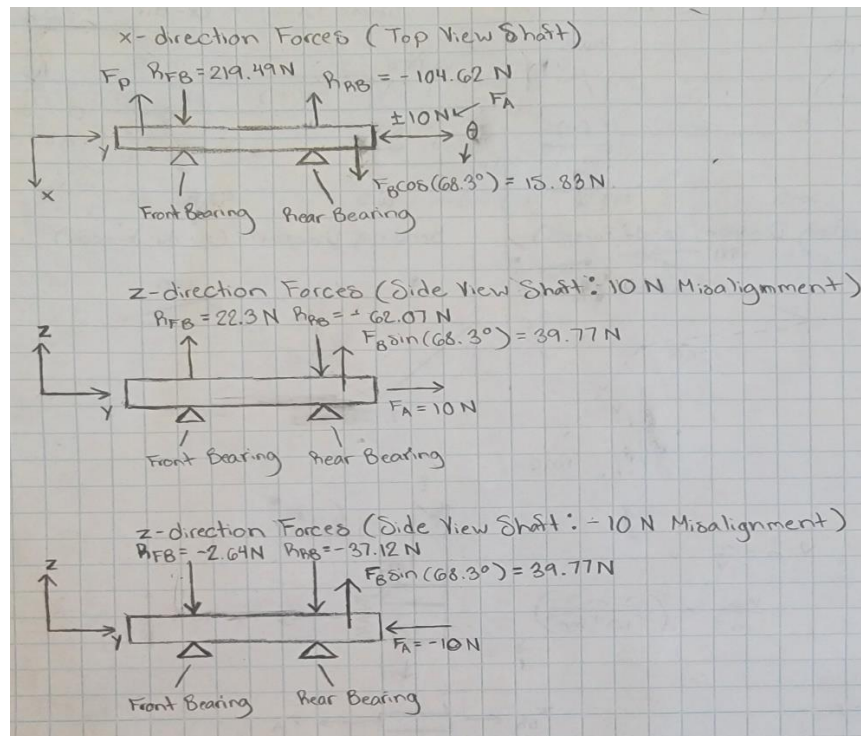 x-direction Forces (Top View Shaft)
Fp RFB=219.49N RRB = -104.62 N
±10N FA
θ
y
x
FBcos(68.3°) = 15.83N
Front Bearing Rear Bearing
z-direction Forces (Side View Shaft: 10 N Misalignment)
RFB = 22.3 N RRB = - 62.07 N
z
FBsin(68.3°) = 39.77N
y
FA = 10 N
Front Bearing Rear Bearing
z-direction Forces (Side View Shaft: -10 N Misalignment)
RFB = -2.64N RRB = -37.12 N
z
FBsin(68.3°) = 39.77N
y
FA = -10 N
Front Bearing Rear Bearing